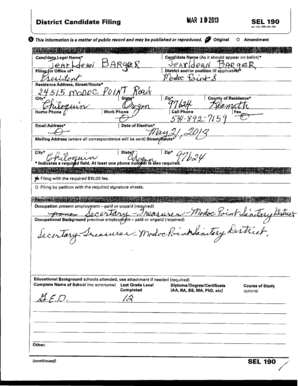 District Candidate Filing
MAR 19 2013
SEL 190
This information is a matter of public record and may be published or reproduced. Original Amendment
Candidate Legal Name*
Candidate Name (As it should appear on ballot)*
Jeardean Barger
Jeardean Barger
Filing for Office of*
District and/or position (if applicable)*
President
Modoc Point-S
Residence Address, Street/Route*
24515 modoc POINT Road
City*
State*
Zip*
County of Residence*
Chiloquin
Oregon
97624
Klamath
Home Phone
Work Phone
Cell Phone
541-892-7159
Email Address*
Date of Election*
May 21, 2013
Mailing Address (where all correspondence will be sent)
City*
State*
Zip*
Chiloquin
Oregon
97624
* Indicates a required field. At least one phone number is also required.
Filing with the required $10.00 fee.
Filing by petition with the required signature sheets.
Occupation present employment - paid or unpaid (required)
Secertary-Treasurer - Modoc Point Sanitary District
Occupational Background previous employment - paid or unpaid (required)
Secertary-Treasurer - Modoc Point Sanitary District.
Educational Background schools attended, use attachment if needed (required)
Complete Name of School (no acronyms)
Last Grade Level Completed
Diploma/Degree/Certificate (AA, BA, BS, MA, PhD, etc)
Course of Study optional
G.E.D.
12
Other:
(continued)
SEL 190